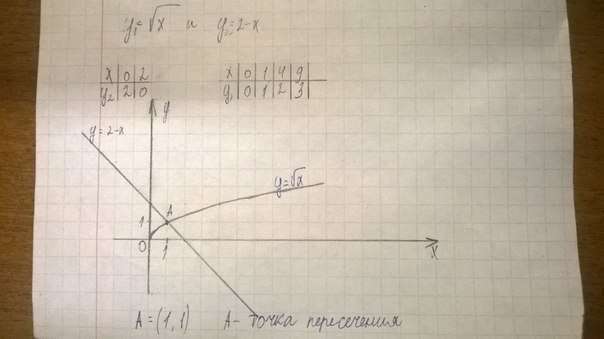 y₁=√x и y₂=2-x
x 0 2
y₂ 2 0
x 0 1 4 9
y₁ 0 1 2 3
y
y=2-x
y=√x
A
1
0
1
x
A=(1,1) A- точка пересечения